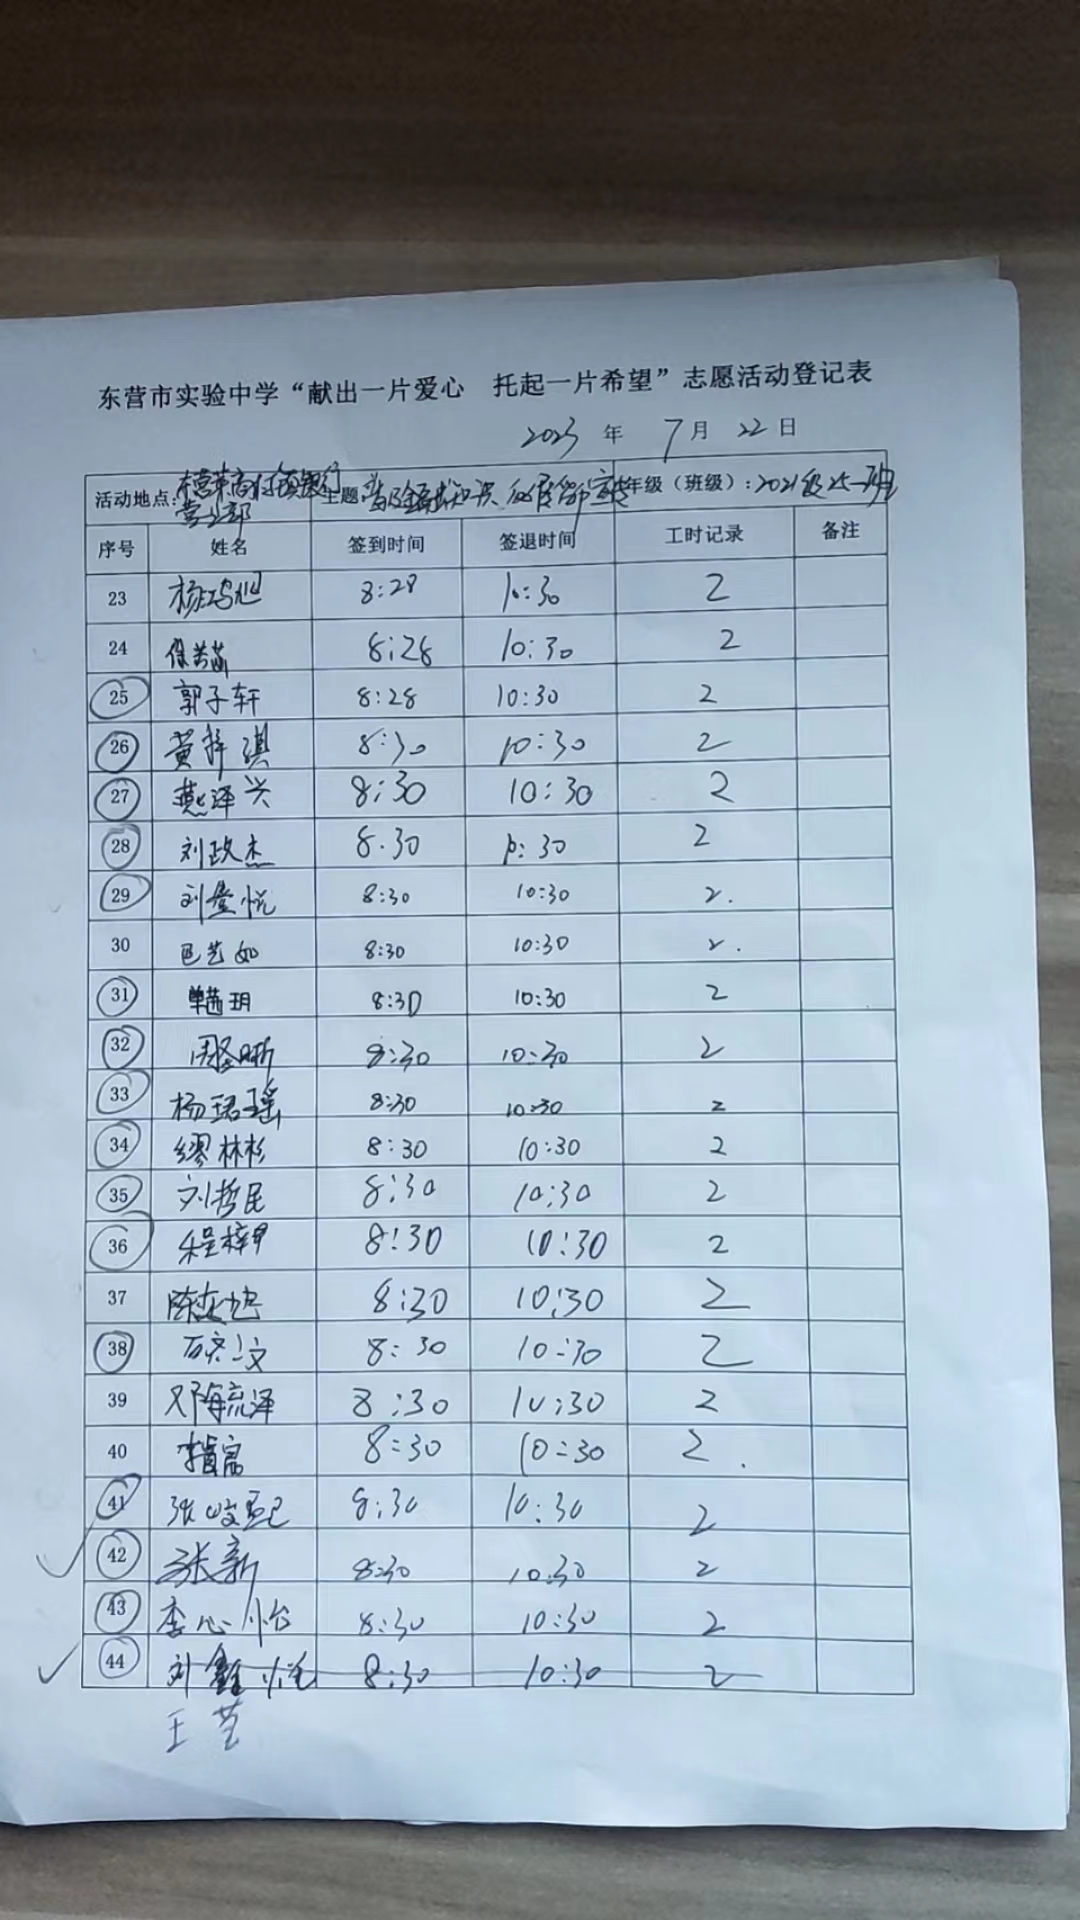 东营市实验中学“献出一片爱心 托起一片希望”志愿活动登记表
2023 年 7 月 22 日
活动地点: 营业部 主题: 年级（班级）: 2021级25班
序号 姓名 签到时间 签退时间 工时记录 备注
23 杨 8:28 10:30 2
24 8:28 10:30 2
25 郭子轩 8:28 10:30 2
26 黄梓淇 8:30 10:30 2
27 燕泽兴 8:30 10:30 2
28 刘政杰 8.30 10:30 2
29 刘 悦 8:30 10:30 2.
30 巴艺如 8:30 10:30 2.
31 单茜玥 8:30 10:30 2
32 周 晰 8:30 10:30 2
33 杨珺瑶 8:30 10:30 2
34 缪林杉 8:30 10:30 2
35 刘哲民 8:30 10:30 2
36 程梓 8:30 10:30 2
37 陈 8:30 10:30 2
38 8:30 10:30 2
39 邓 流泽 8:30 10:30 2
40 8:30 10:30 2.
41 张峻熙 8:30 10:30 2
42 张新 8:30 10:30 2
43 李心怡 8:30 10:30 2
44 刘鑫悦 8:30 10:30 2
王艺